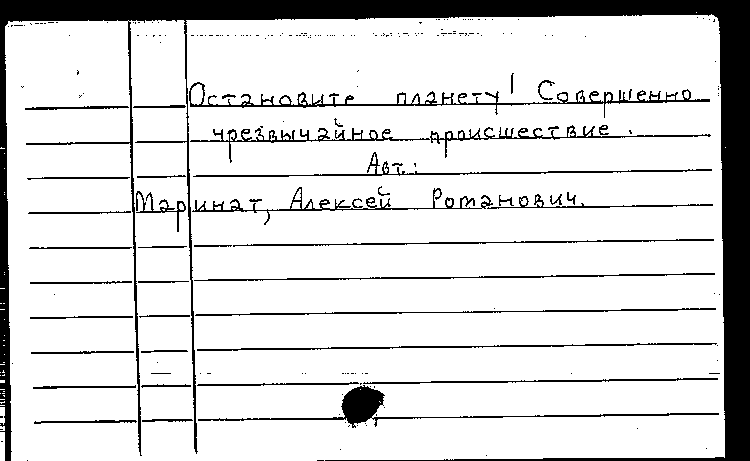 Остановите планету! Совершенно
чрезвычайное происшествие.
Авт.:
Маринат, Алексей Романович.